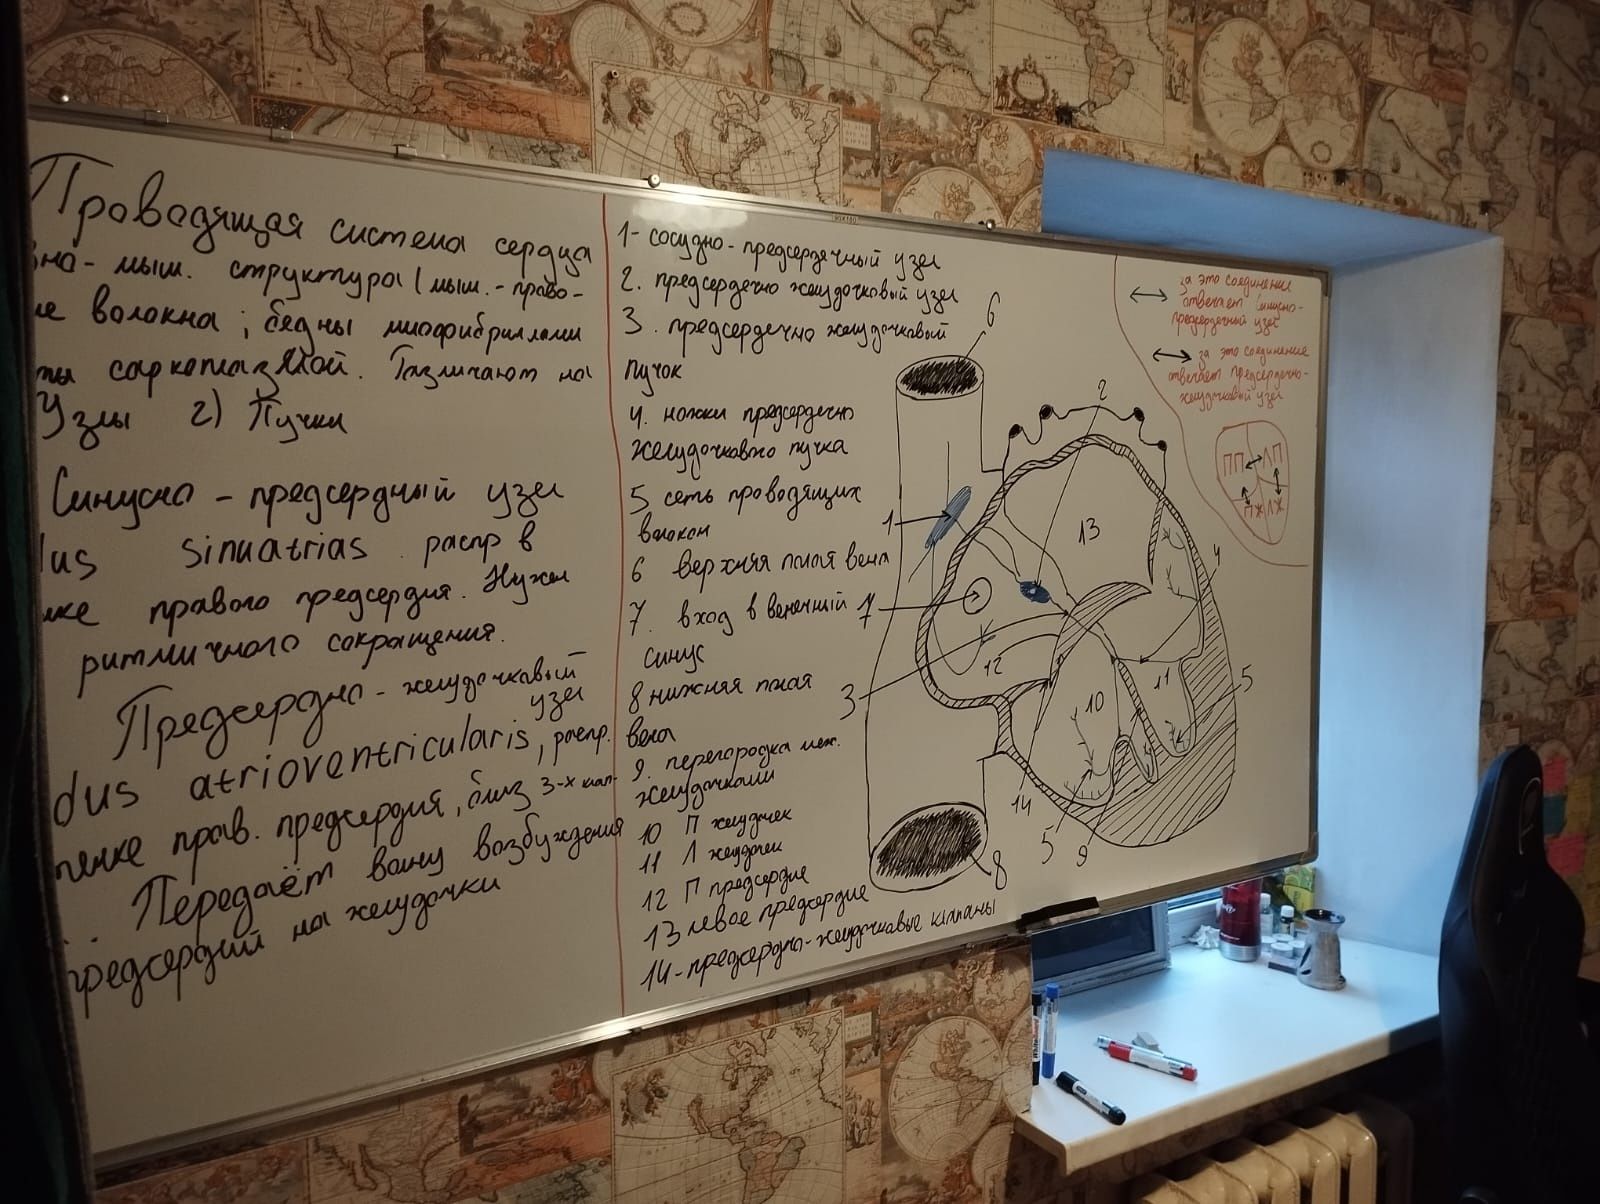 Проводящая система сердца
вно - мыш. структура (мыш. - право-
ие волокна; бедны миофибриллами
ты саркоплазмой. Различают на
Узлы 2) Пучки
Синусно - предсердный узел
dus sinuatrias распр в
нке правого предсердия. Нужен
ритмичного сокращения.
Предсердно - желудочковый
узел
dus atrioventricularis, распр.
тенке прав. предсердия, близ 3-х клап.
Передаёт волну возбуждения
предсердий на желудочки
1- сосудно - предсердечный узел
2. предсердечно желудочковый узел
3. предсердечно желудочковый
пучок
4. ножки предсердечно
желудочкового пучка
5 сеть проводящих
волокон
6 верхняя полая вена
7. вход в венечный
синус
8 нижняя полая
вена
9. перегородка меж.
желудочками
10 П желудочек
11 Л желудочек
12 П предсердие
13 левое предсердие
14 - предсердно - желудочковые клапаны
за это соединение
отвечает синусно-
предсердечный узел
за это соединение
отвечает предсердечно-
желудочковый узел
ПП ЛП
ПЖ ЛЖ
6
2
1
13
4
7
12
3
10
11
5
14
5
9
8